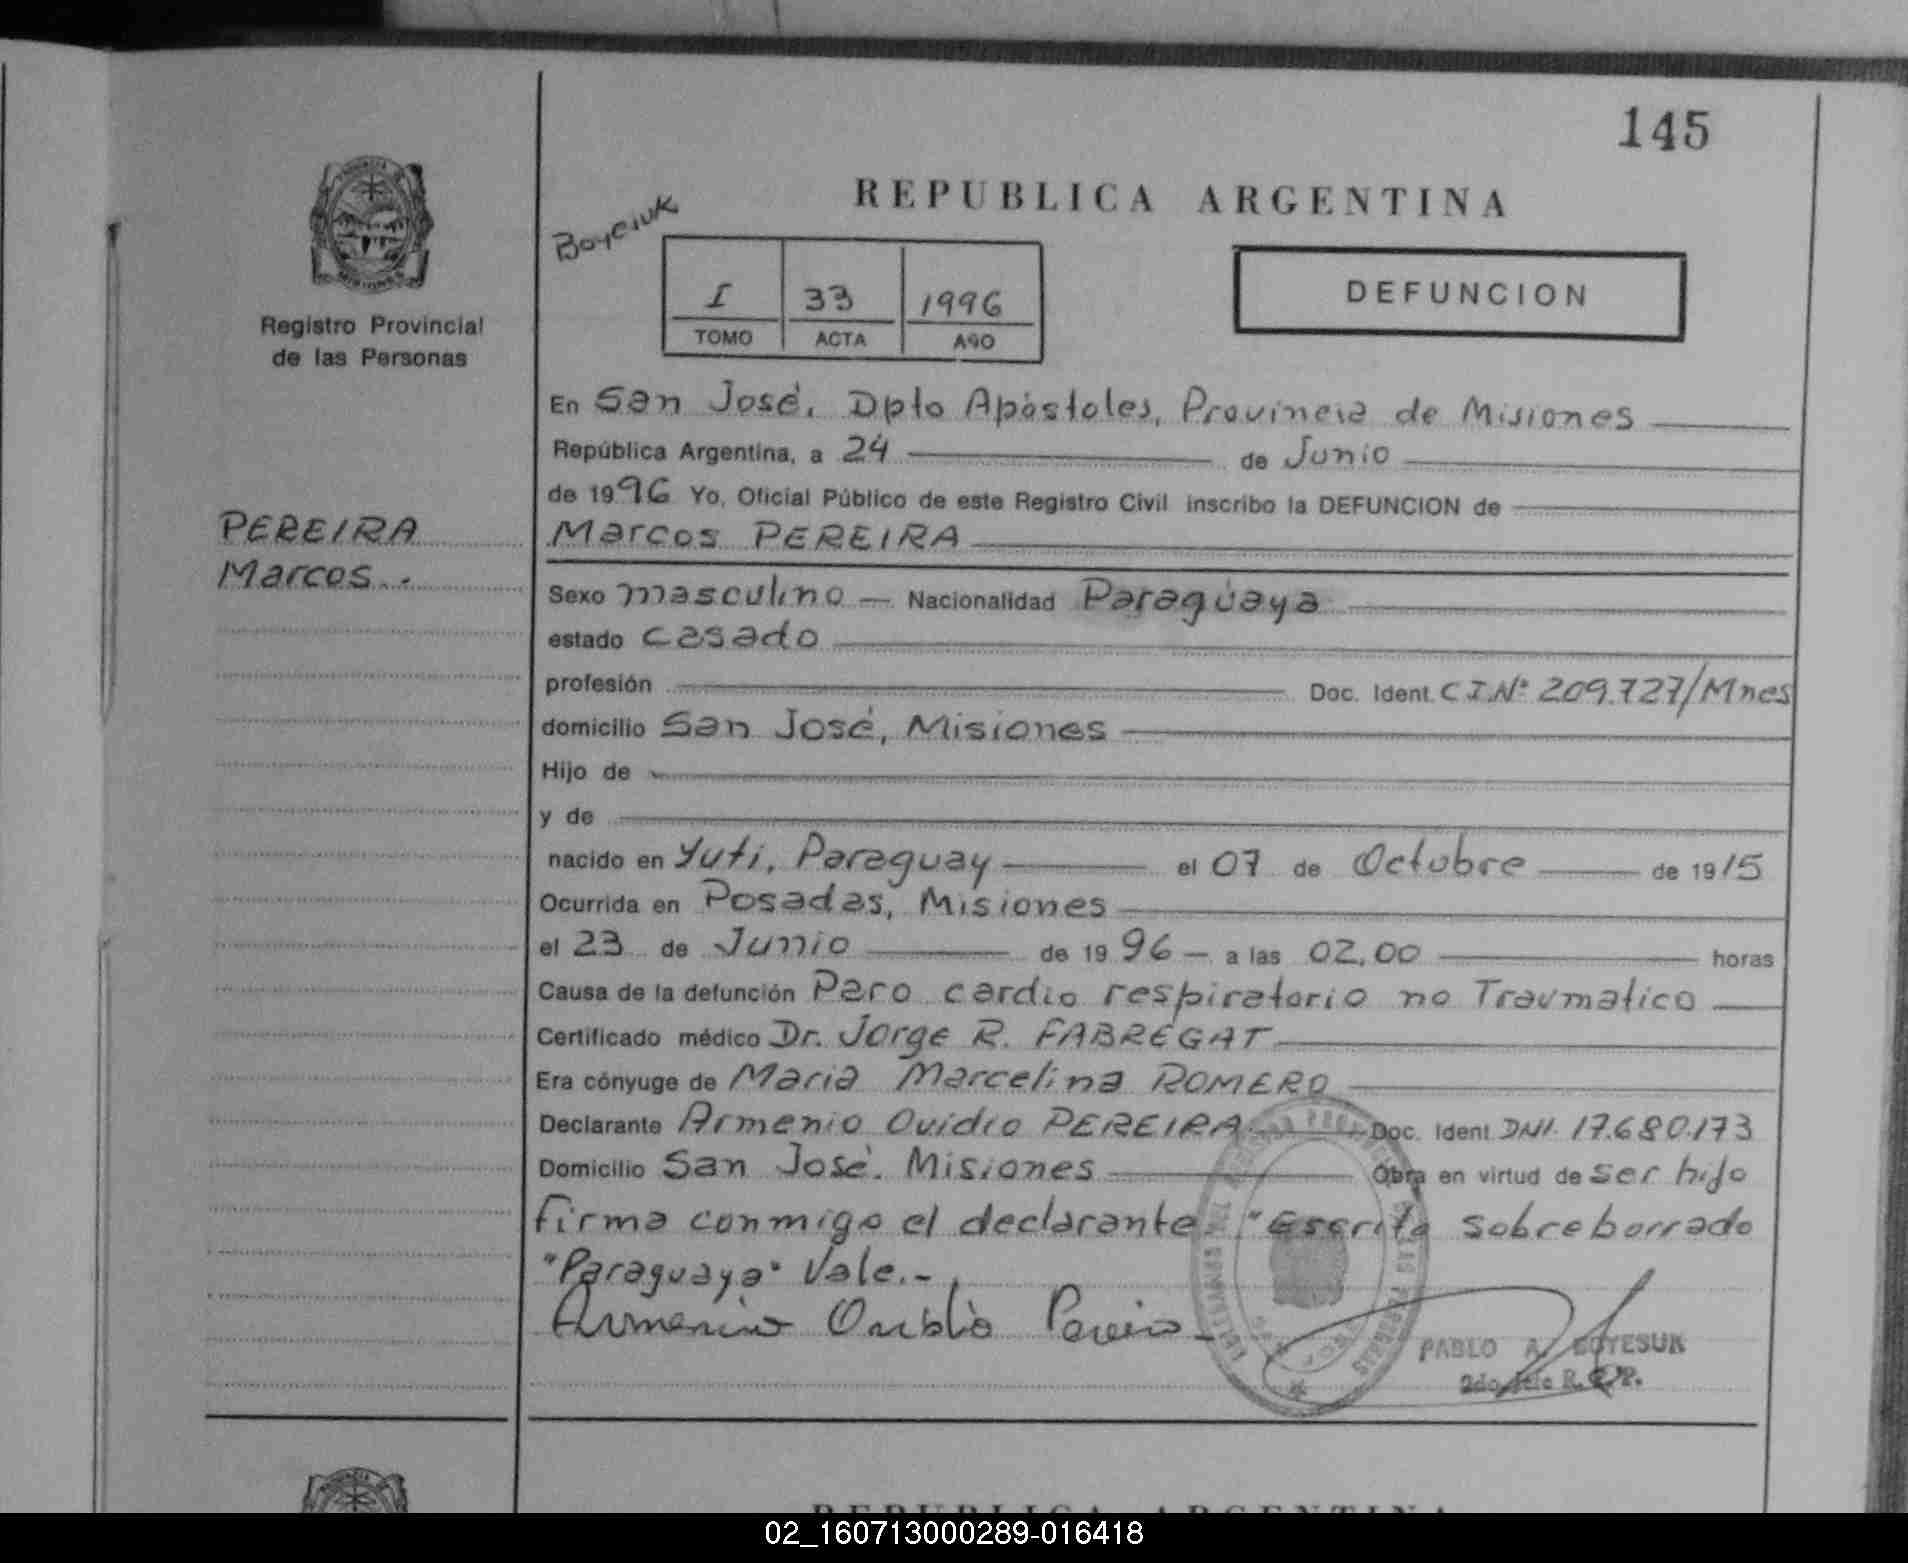 145
REPUBLICA ARGENTINA
I 33 1996
TOMO ACTA AÑO
DEFUNCION
Registro Provincial
de las Personas
PEREIRA
Marcos.
En San José, Dpto Apóstoles, Provincia de Misiones
República Argentina, a 24 de Junio
de 1996 Yo, Oficial Público de este Registro Civil inscribo la DEFUNCION de
Marcos PEREIRA
Sexo masculino Nacionalidad Paraguaya
estado casado
profesión Doc. Ident. C.I.Nº 209.727/Mnes
domicilio San José, Misiones
Hijo de
y de
nacido en Yuti, Paraguay el 07 de Octubre de 1915
Ocurrida en Posadas, Misiones
el 23 de Junio de 1996 a las 02,00 horas
Causa de la defunción Paro cardio respiratorio no Traumatico
Certificado médico Dr. Jorge R. FABREGAT
Era cónyuge de Maria Marcelina ROMERO
Declarante Armenio Ovidio PEREIRA Doc. Ident DNI. 17.680.173
Domicilio San José. Misiones Obra en virtud de ser hijo
Firma conmigo el declarante "Escrito sobreborrado
"Paraguaya" Vale.-
PABLO A. BOYESUK
REPUBLICA ARGENTINA
02_160713000289-016418